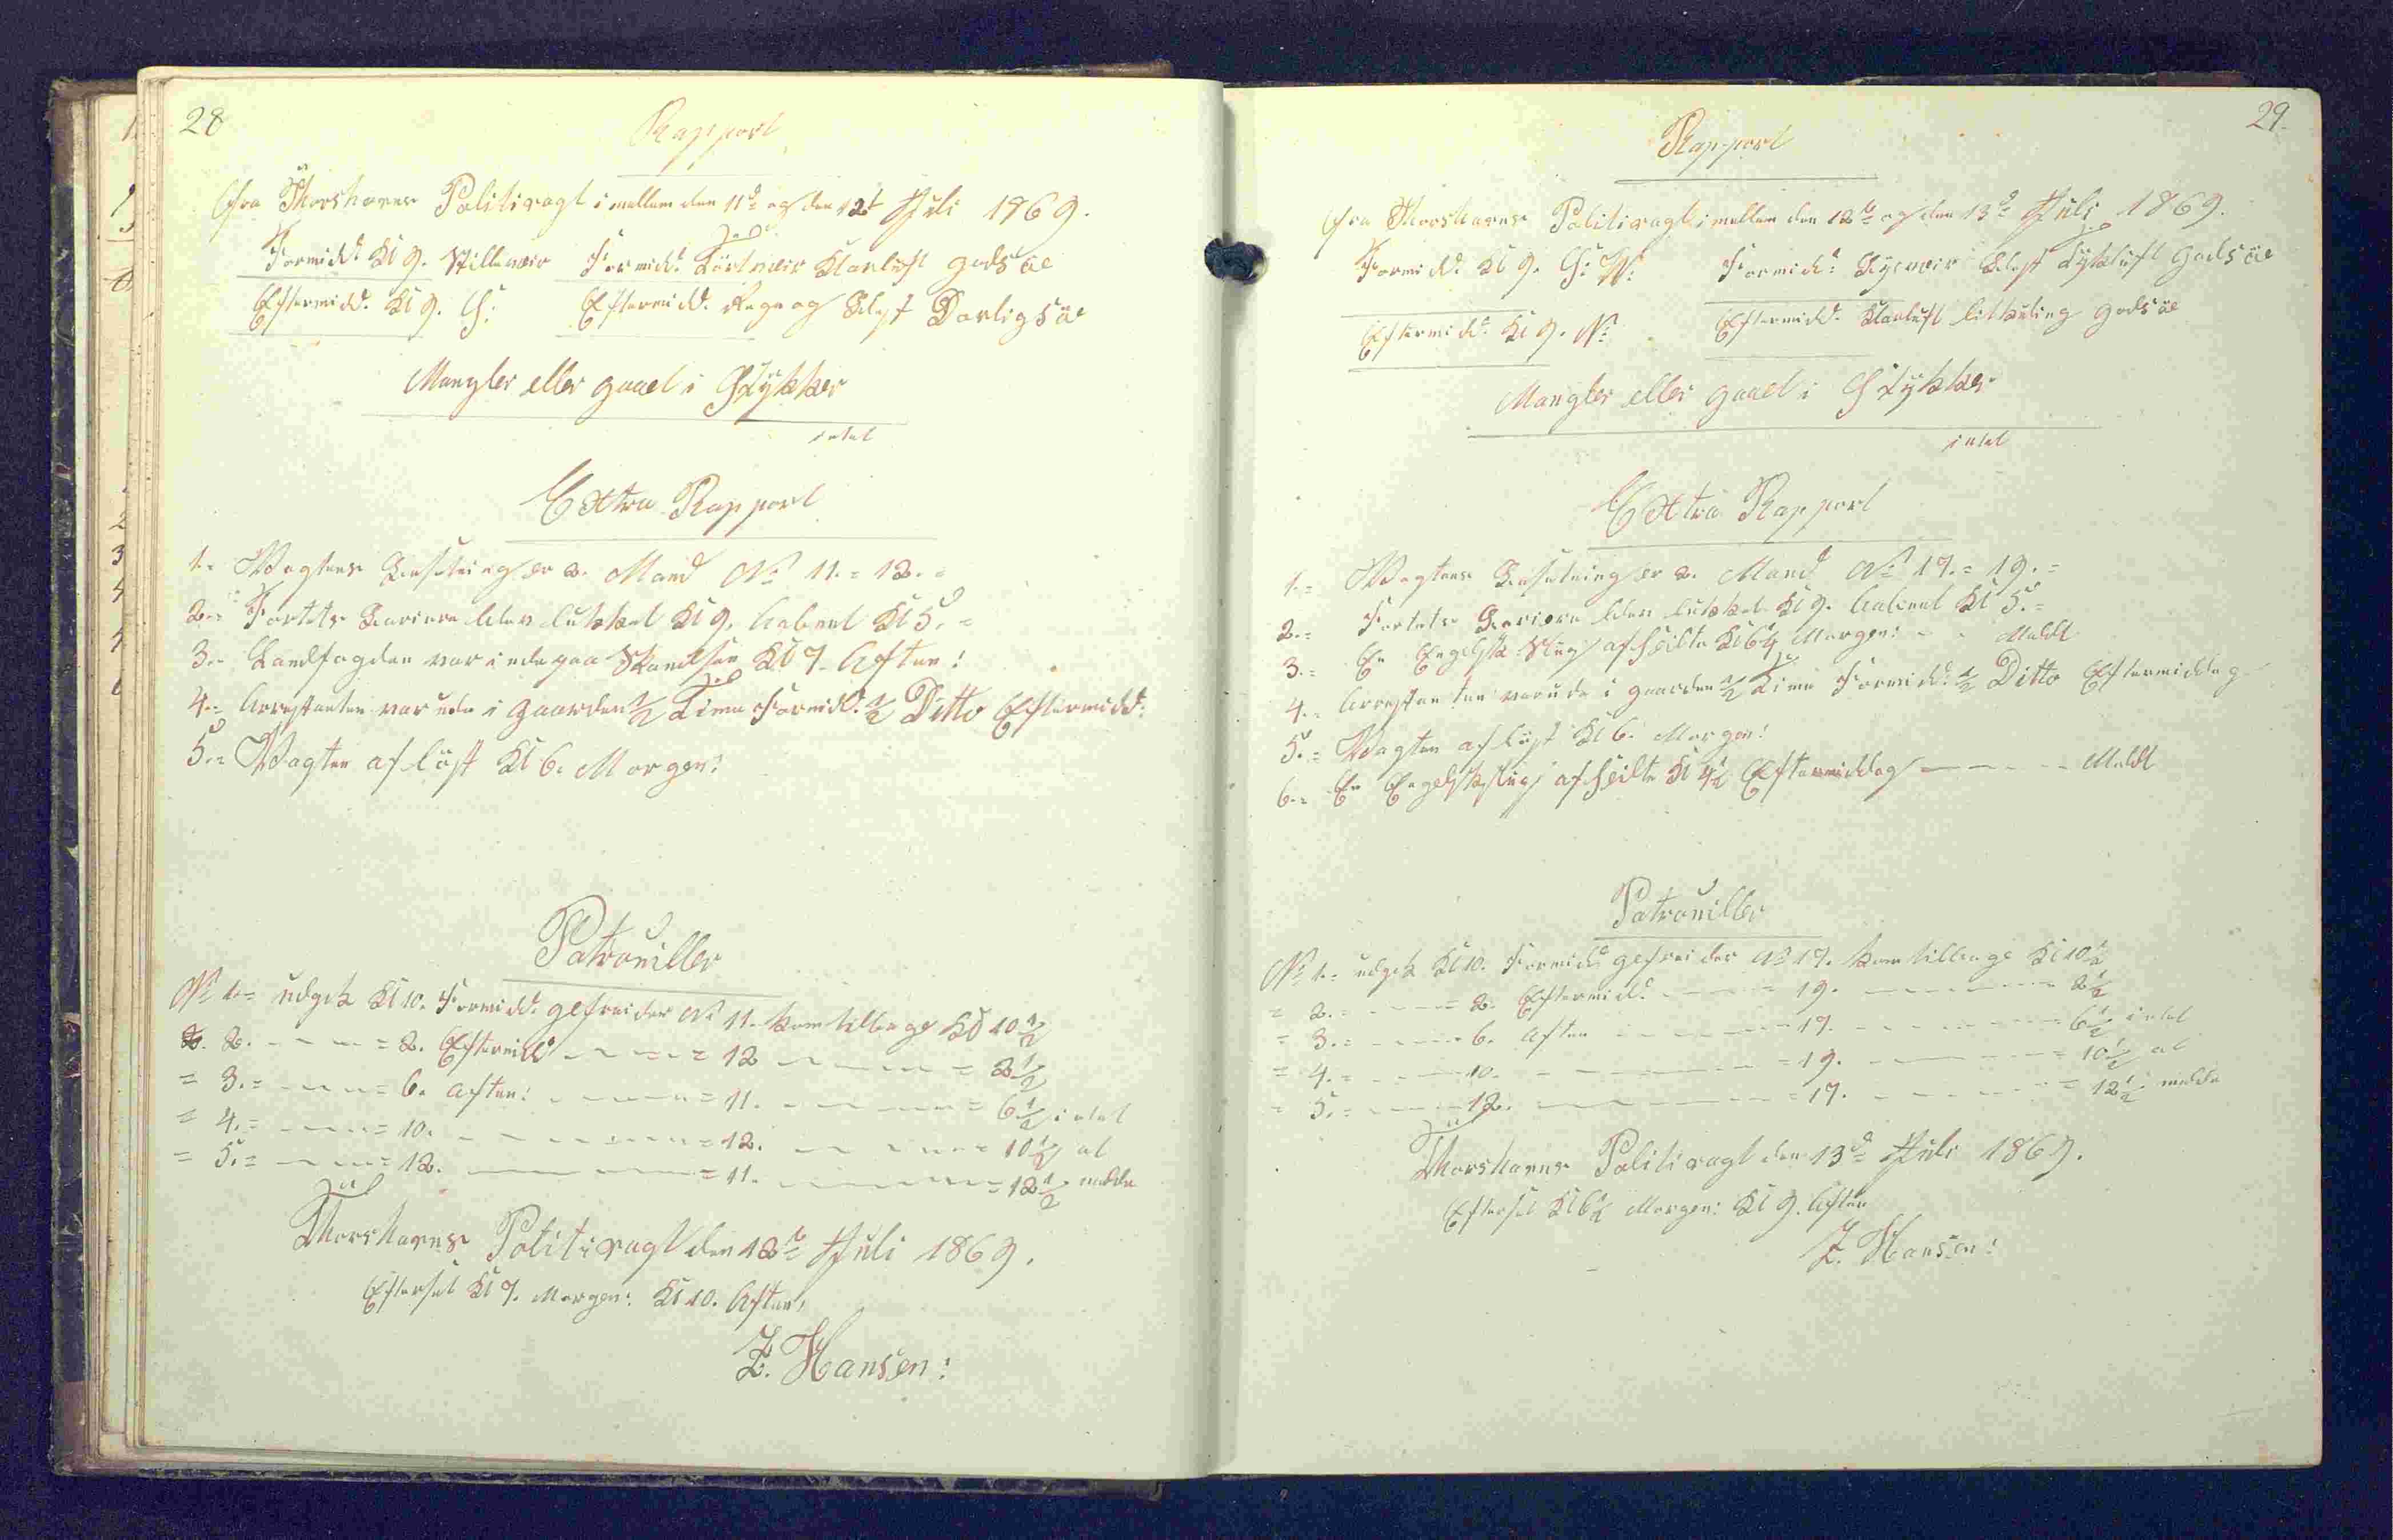 28
Rapport
fra Thorshavns Politivagt imellem den 11d og den 12t Juli 1869.
Formidd: Kl 9. Stillevær Formidd: Tørtveir Klarluft godsöe
Eftermidd: Kl 9. S: Eftermidd: Regn og Blæst Darligsöe
Mangler eller gaaet i Stykker
intet
Extra Rapport
1.= Vagtens Besetning er 2. Mand No 11.= 12.=
2.= Fortets Bariere blev lukket Kl 9. Aabnet Kl 5.=
3.= Landfogden var inde paa Skandsen Kl 7. Aften:
4.= Arrestanten var ude i gaarden 1/2 Time Formidd: 1/2 Ditto Eftermidd:
5.= Vagten afløst Kl 6. Morgen:
Patrouiller
No 1.= udgik Kl 10. Formidd: gefreider No 11. kom tilbage Kl 10 1/2
2. = 2. Eftermidd = 12 = 2 1/2
= 3.= = 6. Aften: = 11. = 6 1/2 intet
= 4.= = 10. = 12. = 10 1/2 at
= 5.= = 12. = 11. = 12 1/2 melde
Thorshavns Politivagt den 12te Juli 1869.
Efterset Kl 7. Morgen: Kl 10. Aften:
Z. Hansen:
29.
Rapport
fra Thorshavns Politivagt imellem den 12te og den 13d Juli 1869.
Formidd: Kl 9. S: V: Formidd: Blæst Tykluft godsöe
Eftermidd: Kl 9. N: Eftermidd: Klarluft godsöe
Mangler eller gaaet i Stykker
intet
Extra Rapport
1.= Vagtens Besetning er 2. Mand No 17.= 19.=
2.= Fortets Bariere blev lukket Kl 9. Aabnet Kl 5.=
3.= En Engelsk Slup afseilte Kl 6 1/4 Morgen: Meldt
4.= Arrestanten var ude i gaarden 1/2 Time Formidd: 1/2 Ditto Eftermiddag
5.= Vagten afløst Kl 6. Morgen:
6.= En Engelsk Slup afseilte Kl 4 1/2 Eftermiddag Meldt
Patrouiller
No 1.= udgik Kl 10. Formidd: gefreider No 17. kom tilbage Kl 10 1/2
= 2.= = 2. Eftermidd: = 19. = 2 1/2
= 3.= 6. Aften = 17. = 6 1/2 intet
= 4.= 10. = 19. = 10 1/2 at
= 5.= 12. = 17. = 12 1/2 melde
Thorshavns Politivagt den 13d Juli 1869.
Efterset Kl 6 1/2 Morgen: Kl 9. Aften
Z. Hansen: